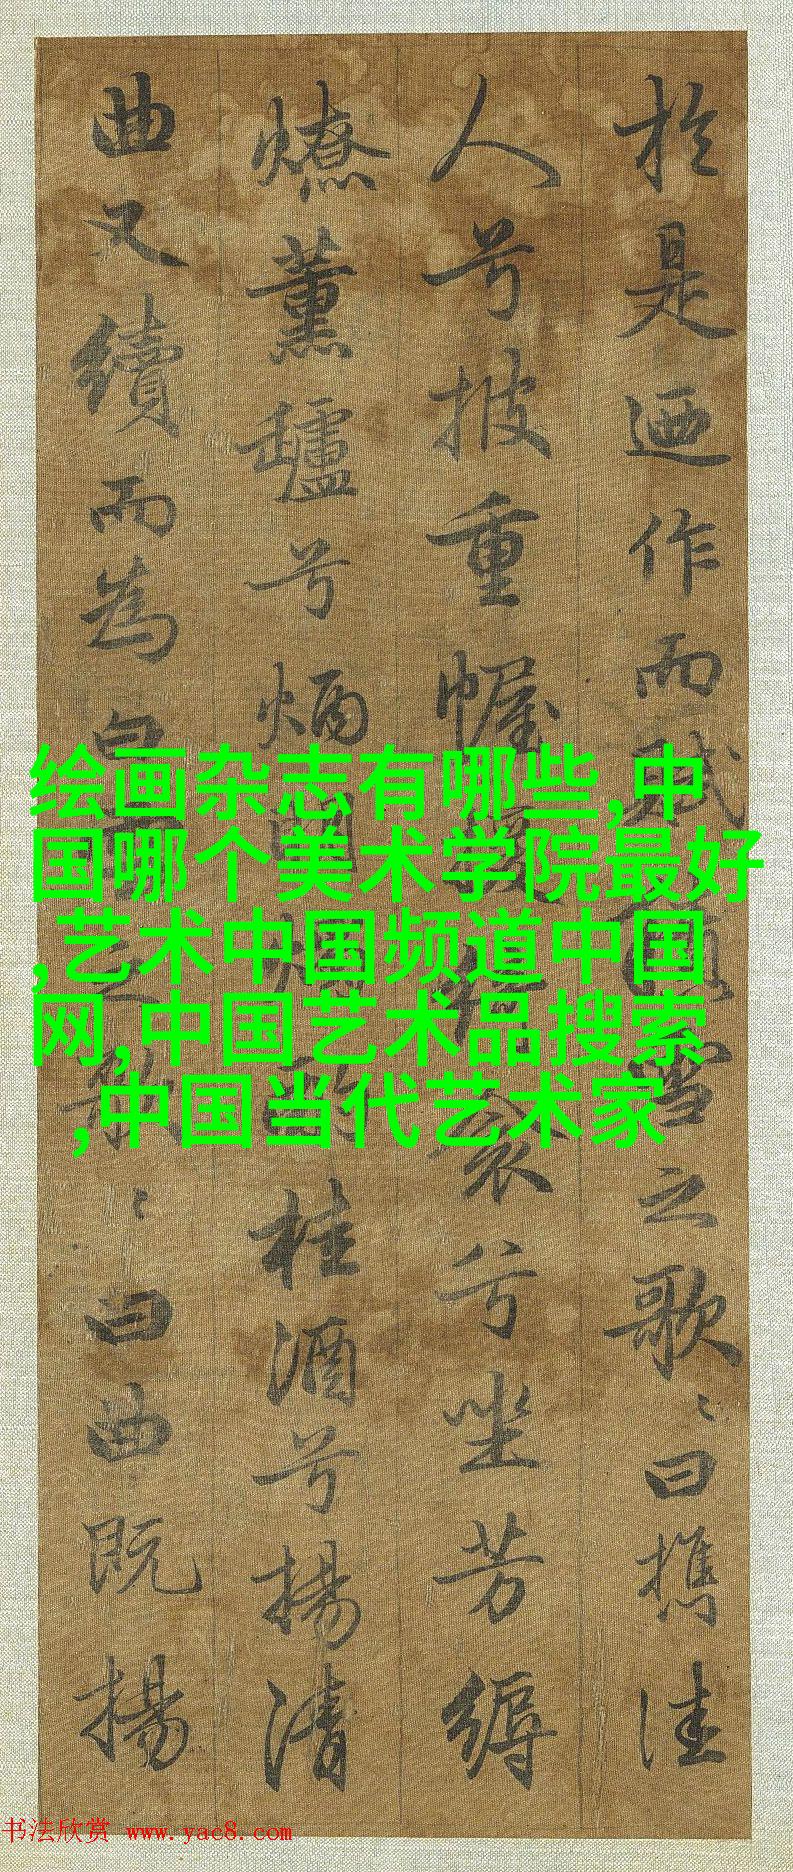 於是迺作而賦雪之歌〻曰攜佳
人兮披重幄援衾兮坐芳縟
燎薰罏兮炳明燭酌桂酒兮揚清
曲又續而為白雪之歌〻曰曲既揚
绘画杂志有哪些,中
国哪个美术学院最好
,艺术中国频道中国
网,中国艺术品搜索
,中国当代艺术家
书法欣赏 www.yac8.com